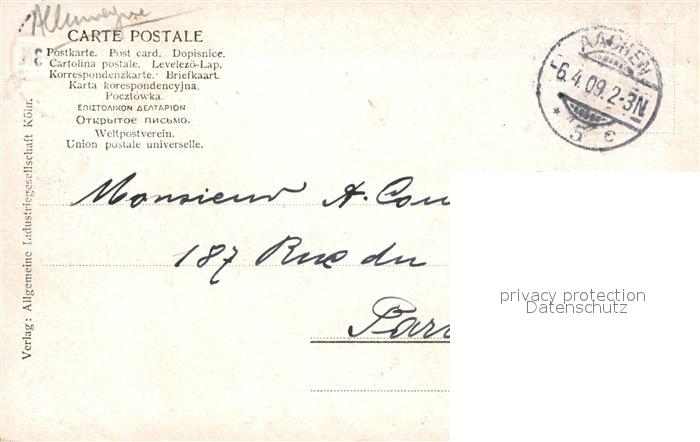 Allemagne
CARTE POSTALE
Postkarte. Post card. Dopisnice.
Cartolina postale. Levelező-Lap.
Korrespondenzkarte. Briefkaart.
Karta korespondencyjna.
Pocztówka.
ΕΠΙΣΤΟΛΙΚΟΝ ΔΕΛΤΑΡΙΟΝ
Открытое письмо.
Weltpostverein.
Union postale universelle.
AACHEN
6.4.09.2-3N
* 5 c
Monsieur A. Cou
187 Rue du
Par
privacy protection
Datenschutz
Verlag: Allgemeine Industriegesellschaft Köln.